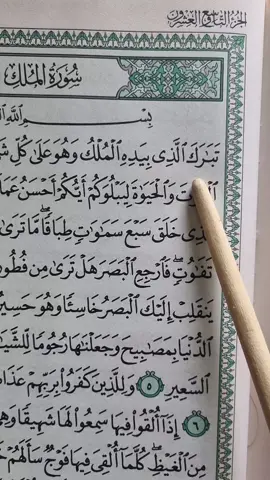 الجزء التاسع والعشرون
سُورَةُ الْمُلْكِ
بِسْمِ اللَّهِ
تَبَٰرَكَ ٱلَّذِى بِيَدِهِ ٱلْمُلْكُ وَهُوَ عَلَىٰ كُلِّ
وَٱلْحَيَوٰةَ لِيَبْلُوَكُمْ أَيُّكُمْ أَحْسَنُ
خَلَقَ سَبْعَ سَمَٰوَٰتٍ طِبَاقًا ۖ مَّا تَرَىٰ
تَفَٰوُتٍ ۖ فَٱرْجِعِ ٱلْبَصَرَ هَلْ تَرَىٰ مِن
يَنقَلِبْ إِلَيْكَ ٱلْبَصَرُ خَاسِئًا وَهُوَ
ٱلدُّنْيَا بِمَصَٰبِيحَ وَجَعَلْنَٰهَا رُجُومًا
ٱلسَّعِيرِ ٥ وَلِلَّذِينَ كَفَرُوا۟ بِرَبِّهِمْ
٦ إِذَآ أُلْقُوا۟ فِيهَا سَمِعُوا۟ لَهَا شَهِيقًا
مِنَ ٱلْغَيْظِ ۖ كُلَّمَآ أُلْقِىَ فِيهَا فَوْجٌ سَأَلَهُمْ